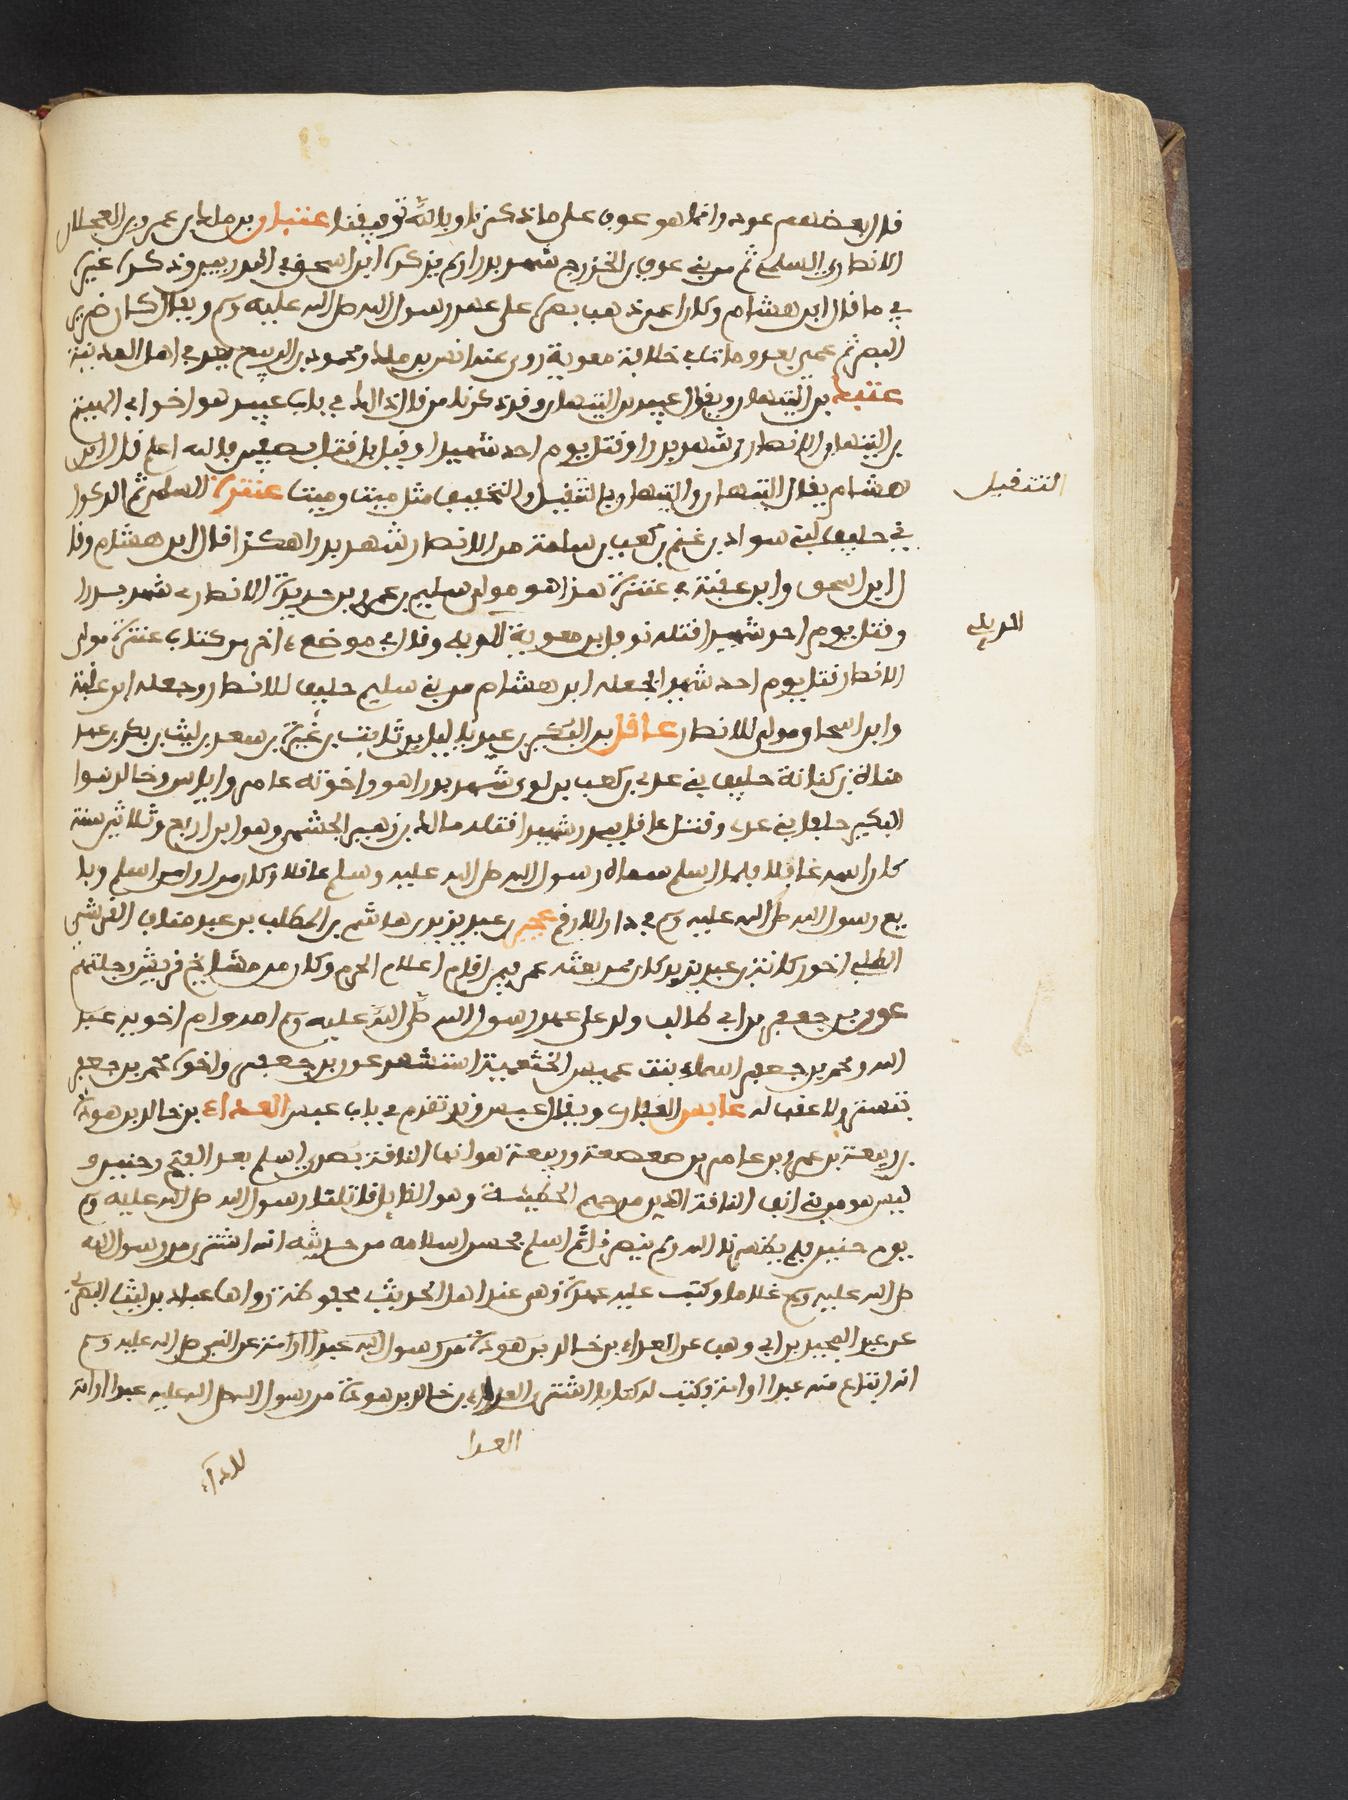 قال بعضهم عوذ وانما هو عوف على ما ذكرنا وبالله توفيقنا عتبان بن مالك بن عمرو بن العجلان
الانصاري السلمي ثم من بني عوف بن الخزرج شهد بدرا ولم يذكره ابن اسحق في البدريين وذكره غيره
في ما قال ابن هشام وكان اعمى ذهب بصره على عهد رسول الله صلى الله عليه وسلم ويقال كان ضرير
البصر ثم عمي بعد ومات في خلافة معوية روى عنه انس بن مالك ومحمود بن الربيع يعد في اهل المدينة
عتيك بن التيهان ويقال عبيد بن التيهان وقد ذكرنا من قال ذلك في باب عبيد هو اخو ابي الهيثم
بن التيهان الانصاري شهد بدرا وقتل يوم احد شهيدا وقيل بل قتل بصفين والله اعلم قال ابن
هشام يقال التيهان والتيهان بالتثقيل والتخفيف مثل ميت وميت عنترة السلمي ثم الذكوا
ني حليف لبني سواد بن غنم بن كعب بن سلمة من الانصار شهد بدرا هكذا قال ابن هشام وقا
ل ابن اسحق وابن عقبة في عنترة هذا هو مولى سليم بن عمرو بن حديدة الانصاري شهد بدرا
وقتل يوم احد شهيدا قتله نوفل بن معوية الديلي وقال في موضع اخر من كتاب عنترة مولى
الانصار قتل يوم احد شهيدا فجعله ابن هشام من بني سليم حليف للانصار وجعله ابن عقبة
وابن اسحاق مولى للانصار عاقل بن البكير بن عبد ياليل بن ناشب بن غيرة بن سعد بن ليث بن بكر بن عبد
مناة بن كنانة حليف بني عدي بن كعب بن لوي شهد بدرا هو واخوته عامر واياس وخالد بنوا
البكير حلفا بني عدي وقتل عاقل ببدر شهيدا قتله مالك بن زهير الجشمي وهو ابن اربع وثلاثين سنة
كان اسمه غافلا فلما اسلم سماه رسول الله صلى الله عليه وسلم عاقلا وكان من اول من اسلم وبا
يع رسول الله صلى الله عليه وسلم في دار الارقم عجير بن عبد يزيد بن هاشم بن المطلب بن عبد مناف القرشي
المطلبي اخو ركانة بن عبد يزيد كان ممن بعثه عمر فيمن اقام اعلام الحرم وكان من مشايخ قريش وجلتهم
عون بن جعفر بن ابي طالب ولد على عهد رسول الله صلى الله عليه وسلم امه وام اخويه عبد
الله ومحمد بن جعفر اسماء بنت عميس الخثعمية استشهد عون بن جعفر واخوه محمد بن جعفر
بتستر ولا عقب له عابس الغفاري ويقال عبس وقد تقدم في باب عبس العداء بن خالد بن هوذة
بن ربيعة بن عمرو بن عامر بن صعصعة وربيعة هو انف الناقة بصري اسلم بعد الفتح وحنين و
ليس هو من بني انف الناقة الذين مدحهم الحطيئة وهو القايل قاتلنا رسول الله صلى الله عليه وسلم
يوم حنين فلم يظهرنا الله ولم ينصرنا ثم اسلم فحسن اسلامه من حديثه انه اشترى من رسول الله
صلى الله عليه وسلم غلاما وكتب عليه عهدة وهي عند اهل الحديث محفوظة رواها عباد بن ليث البصري
عن عبد المجيد بن ابي وهب عن العداء بن خالد بن هوذة من رسول الله عبدا او امة عن النبي صلى الله عليه وسلم
انه ابتاع منه عبدا او امة وكتب له كتابا اشترى العداء بن خالد بن هوذة من رسول الله صلى الله عليه عبدا او امة
التثقيل
الديلي
العدا
لا داء